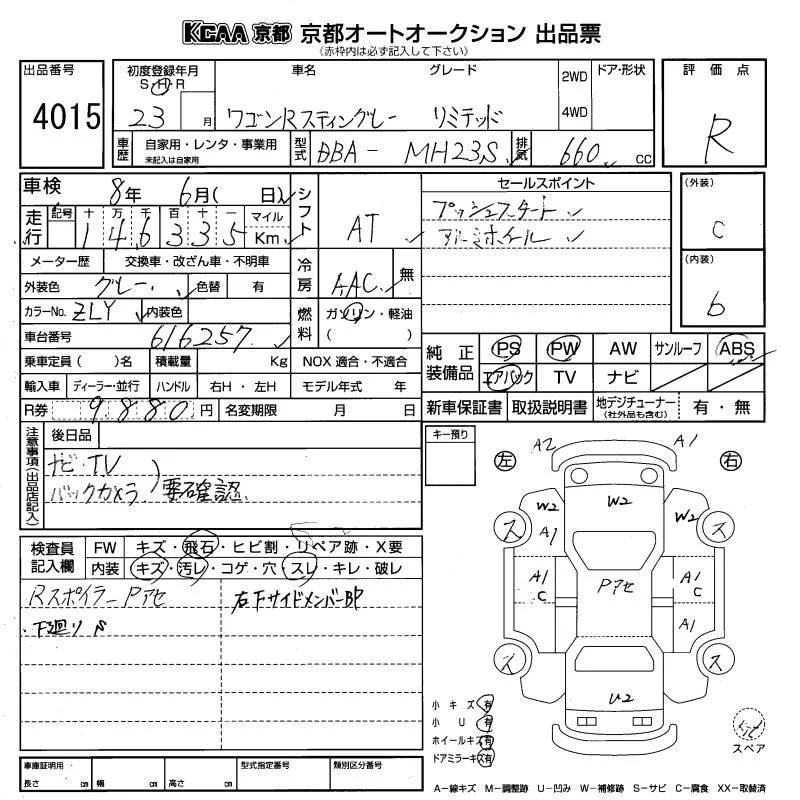 KCAA 京都 京都オートオークション 出品票
(赤枠内は必ず記入して下さい)
出品番号
4015
初度登録年月
S H R
23 月
車名
ワゴンRスティングレー
グレード
リミテッド
2WD
4WD
ドア・形状
評価点
R
車歴
自家用・レンタ・事業用
未記入は自家用
型式
DBA- MH23S
排気
660 cc
車検 8年 6月( 日)
シフト
AT
セールスポイント
プッシュスタート
アルミホイール
(外装)
C
(内装)
b
走行
記号 十 万 千 百 十 一
146335
マイル
Km
メーター歴 交換車・改ざん車・不明車
冷房
AAC
無
外装色 グレー 色替 有
カラーNo. ZLY 内装色
燃料
ガソリン・軽油
( )
車台番号
616257
純正装備品
PS PW AW サンルーフ ABS
エアバック TV ナビ
乗車定員( )名 積載量 Kg NOX 適合・不適合
輸入車 ディーラー・並行 ハンドル 右H・左H モデル年式 年
R券 9880円 名変期限 月 日
新車保証書 取扱説明書 地デジチューナー
(社外品も含む)
有・無
注意事項(出品店記入)
後日品
ナビ・TV
バックカメラ) 要確認
キー預り
左
右
A2
A1
W2
W2
W2
A1
A1
C
Pアセ
A1
C
A1
U2
ス
ス
ス
ス
検査員記入欄
FW キズ・飛石・ヒビ割・リペア跡・X要
内装 キズ・汚レ・コゲ・穴・スレ・キレ・破レ
Rスポイラー Pアセ
右下サイドメンバーBP
・下廻り S
小キズ 有
小U 有
ホイールキズ 有
ドアミラーキズ 有
スペア
車庫証明用
長さ cm 幅 cm 高さ cm
型式指定番号
類別区分番号
A-線キズ M-調整跡 U-凹み W-補修跡 S-サビ C-腐食 XX-取替済